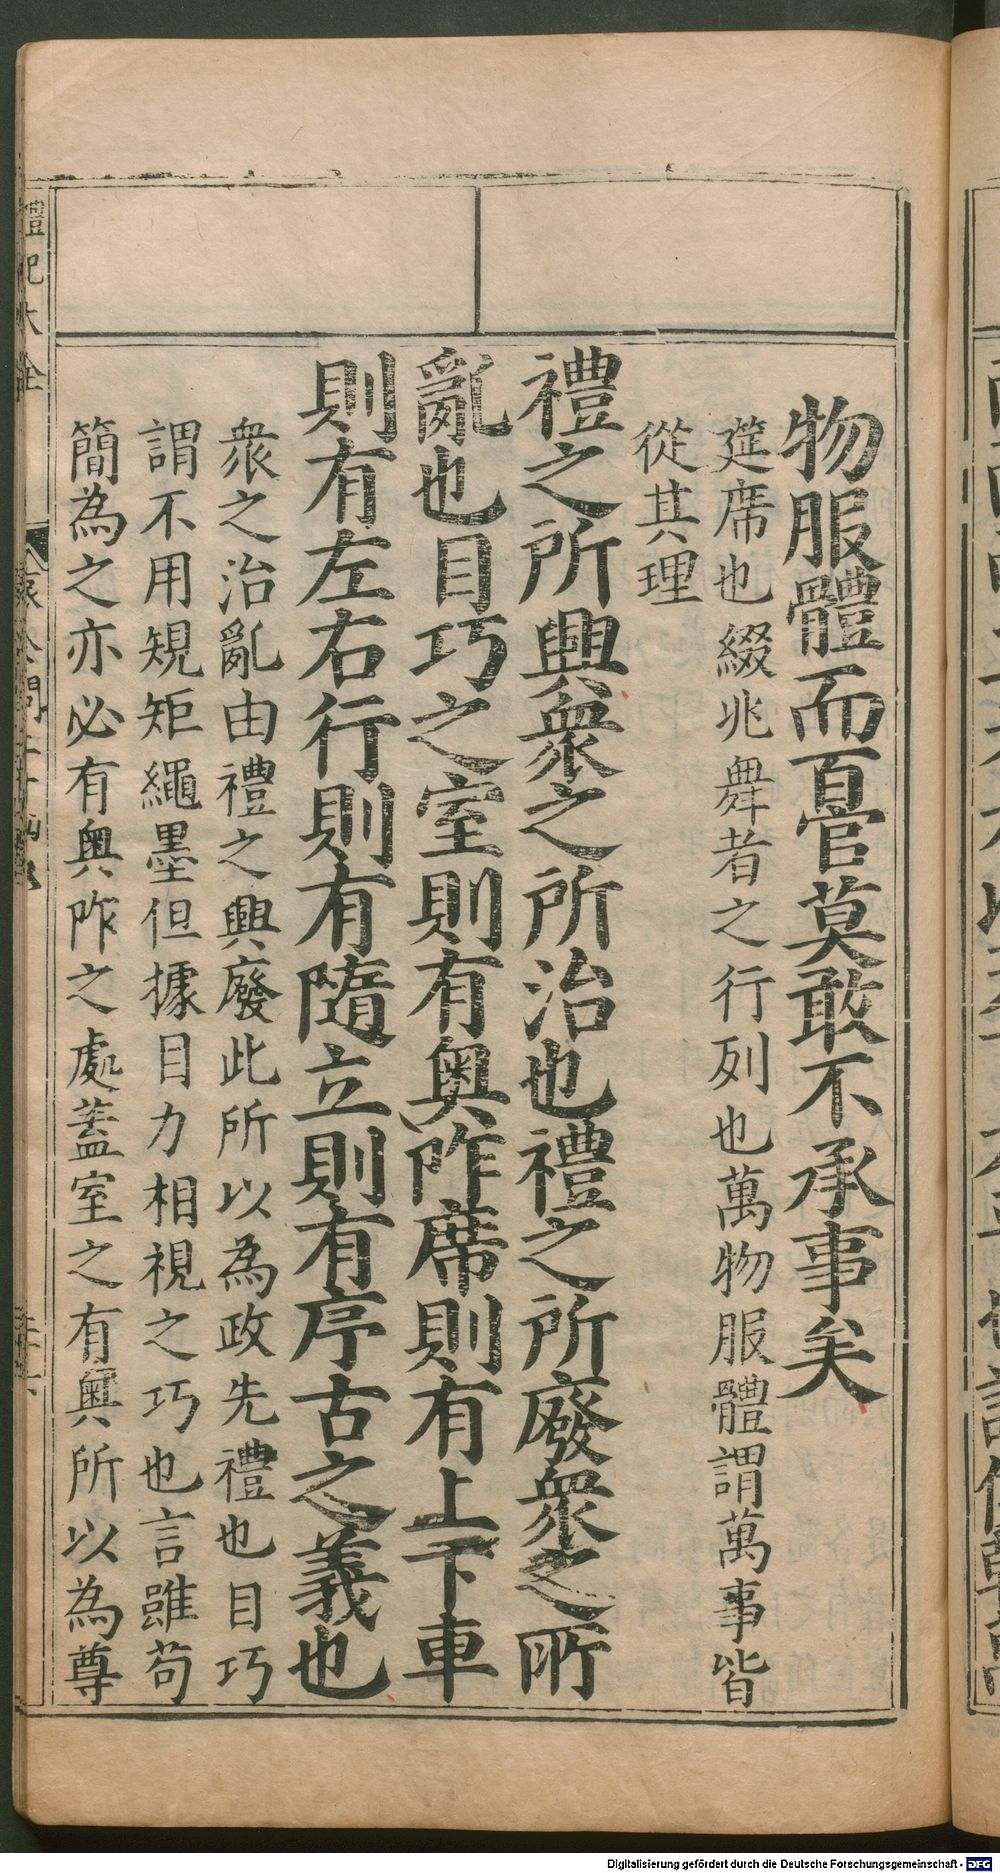 物服體而百官莫敢不承事矣
筵席也綴兆舞者之行列也萬物服體謂萬事皆
從其理
禮之所興衆之所治也禮之所廢衆之所
亂也目巧之室則有奥阼席則有上下車
則有左右行則有隨立則有序古之義也
衆之治亂由禮之興廢此所以為政先禮也目巧
謂不用規矩繩墨但據目力相視之巧也言雖苟
簡為之亦必有奥阼之處蓋室之有奥所以為尊
禮記大全
Digitalisierung gefördert durch die Deutsche Forschungsgemeinschaft - DFG